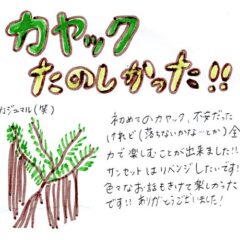 カヤック
たのしかった!!
ガジュマル(笑)
初めてのカヤック、不安だった
けれど(落ちないかな…とか)全
力で楽しむことが出来ました!!
サンセットはリベンジしたいです!
色々なお話もきけて楽しかった
です!! ありがとうございました!